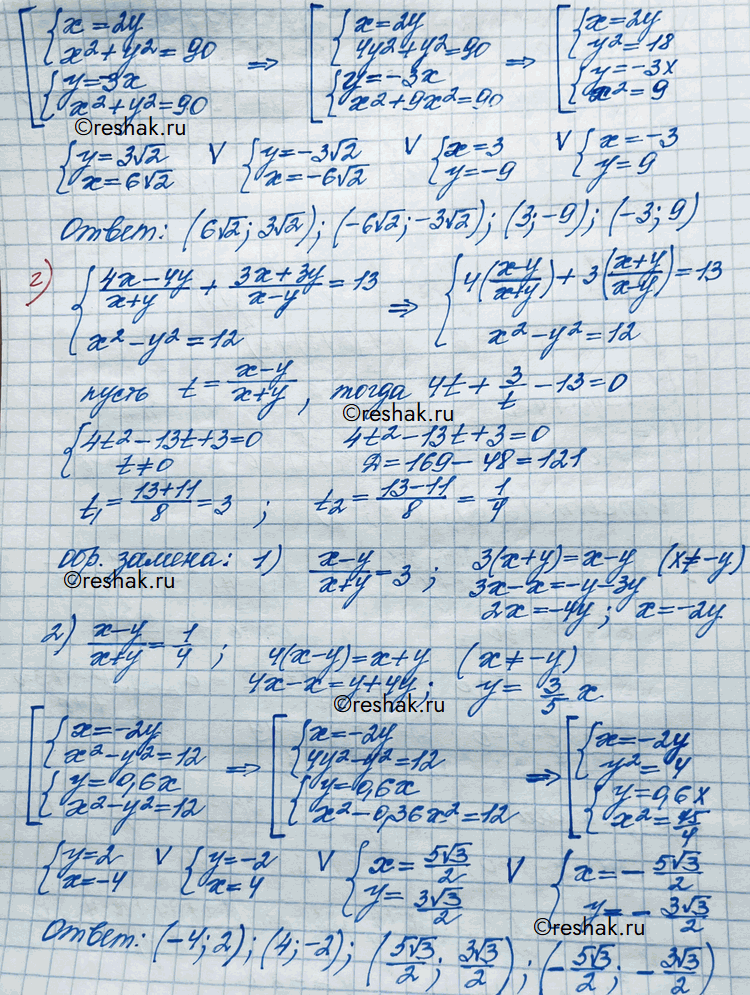 [ { x = 2y   x² + y² = 90   { y = -3x   x² + y² = 90   ⇒   [ { x = 2y   4y² + y² = 90   { y = -3x   x² + 9x² = 90   ⇒   [ { x = 2y   y² = 18   { y = -3x   x² = 9
©reshak.ru
{ y = 3√2   x = 6√2   V   { y = -3√2   x = -6√2   V   { x = 3   y = -9   V   { x = -3   y = 9
Ответ: (6√2; 3√2); (-6√2; -3√2); (3; -9); (-3; 9)
г) { (4x-4y)/(x+y) + (3x+3y)/(x-y) = 13   x² - y² = 12   ⇒   { 4((x-y)/(x+y)) + 3((x+y)/(x-y)) = 13   x² - y² = 12
пусть t = (x-y)/(x+y), тогда 4t + 3/t - 13 = 0
©reshak.ru
{ 4t² - 13t + 3 = 0   t ≠ 0   4t² - 13t + 3 = 0
Д = 169 - 48 = 121
t₁ = (13+11)/8 = 3 ; t₂ = (13-11)/8 = 1/4
обр. замена: 1) (x-y)/(x+y) = 3 ; 3(x+y) = x-y (x ≠ -y)
©reshak.ru
3x - x = -y - 3y
2x = -4y ; x = -2y
2) (x-y)/(x+y) = 1/4 ; 4(x-y) = x+y (x ≠ -y)
4x - x = y + 4y ; y = 3/5 x
©reshak.ru
[ { x = -2y   x² - y² = 12   { y = 0,6x   x² - y² = 12   ⇒   [ { x = -2y   4y² - y² = 12   { y = 0,6x   x² - 0,36x² = 12   ⇒   [ { x = -2y   y² = 4   { y = 0,6x   x² = 75/4
{ y = 2   x = -4   V   { y = -2   x = 4   V   { x = 5√3/2   y = 3√3/2   V   { x = - 5√3/2   y = - 3√3/2
©reshak.ru
Ответ: (-4; 2); (4; -2); (5√3/2; 3√3/2); (-5√3/2; -3√3/2)